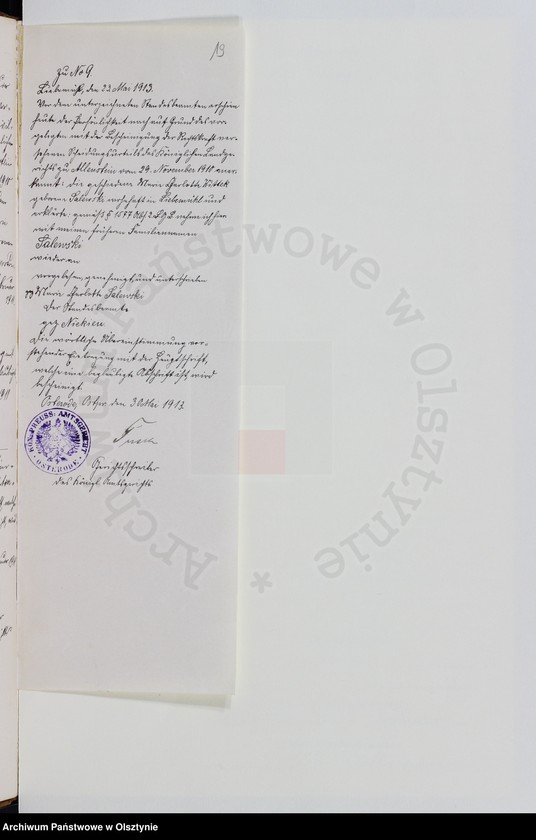 19
zu No 9.
Liebemühl, den 23 Mai 1913.
Vor dem unterzeichneten Standesbeamten erschien
heute der Persönlichkeit nach auf Grund des vor-
gelegten mit der Bescheinigung der Rechtskraft ver-
sehenen Scheidungsurteils des Königlichen Landge-
richts zu Allenstein vom 29. November 1910 aner-
kannt: die geschiedene Marie Charlotte
geborene Salewski wohnhaft in Liebemühl und
erklärte: gemäß § 1577 Abs 2 B.G.B. nehme ich hier-
mit meinen früheren Familiennamen
Salewski
wieder an
vorgelesen, genehmigt und unterschrieben
gez Marie Charlotte Salewski
Der Standesbeamte
gez
Die wörtliche Übereinstimmung vor-
stehender Eintragung mit der Hauptschrift,
welche eine beglaubigte Abschrift ist, wird
bescheinigt
Osterode, Ostpr. den 3 1913.
KÖN. PREUSS. AMTSGERICHT
OSTERODE
Gerichtsschreiber
des Königl. Amtsgerichts
Archiwum Państwowe w Olsztynie *
Archiwum Państwowe w Olsztynie